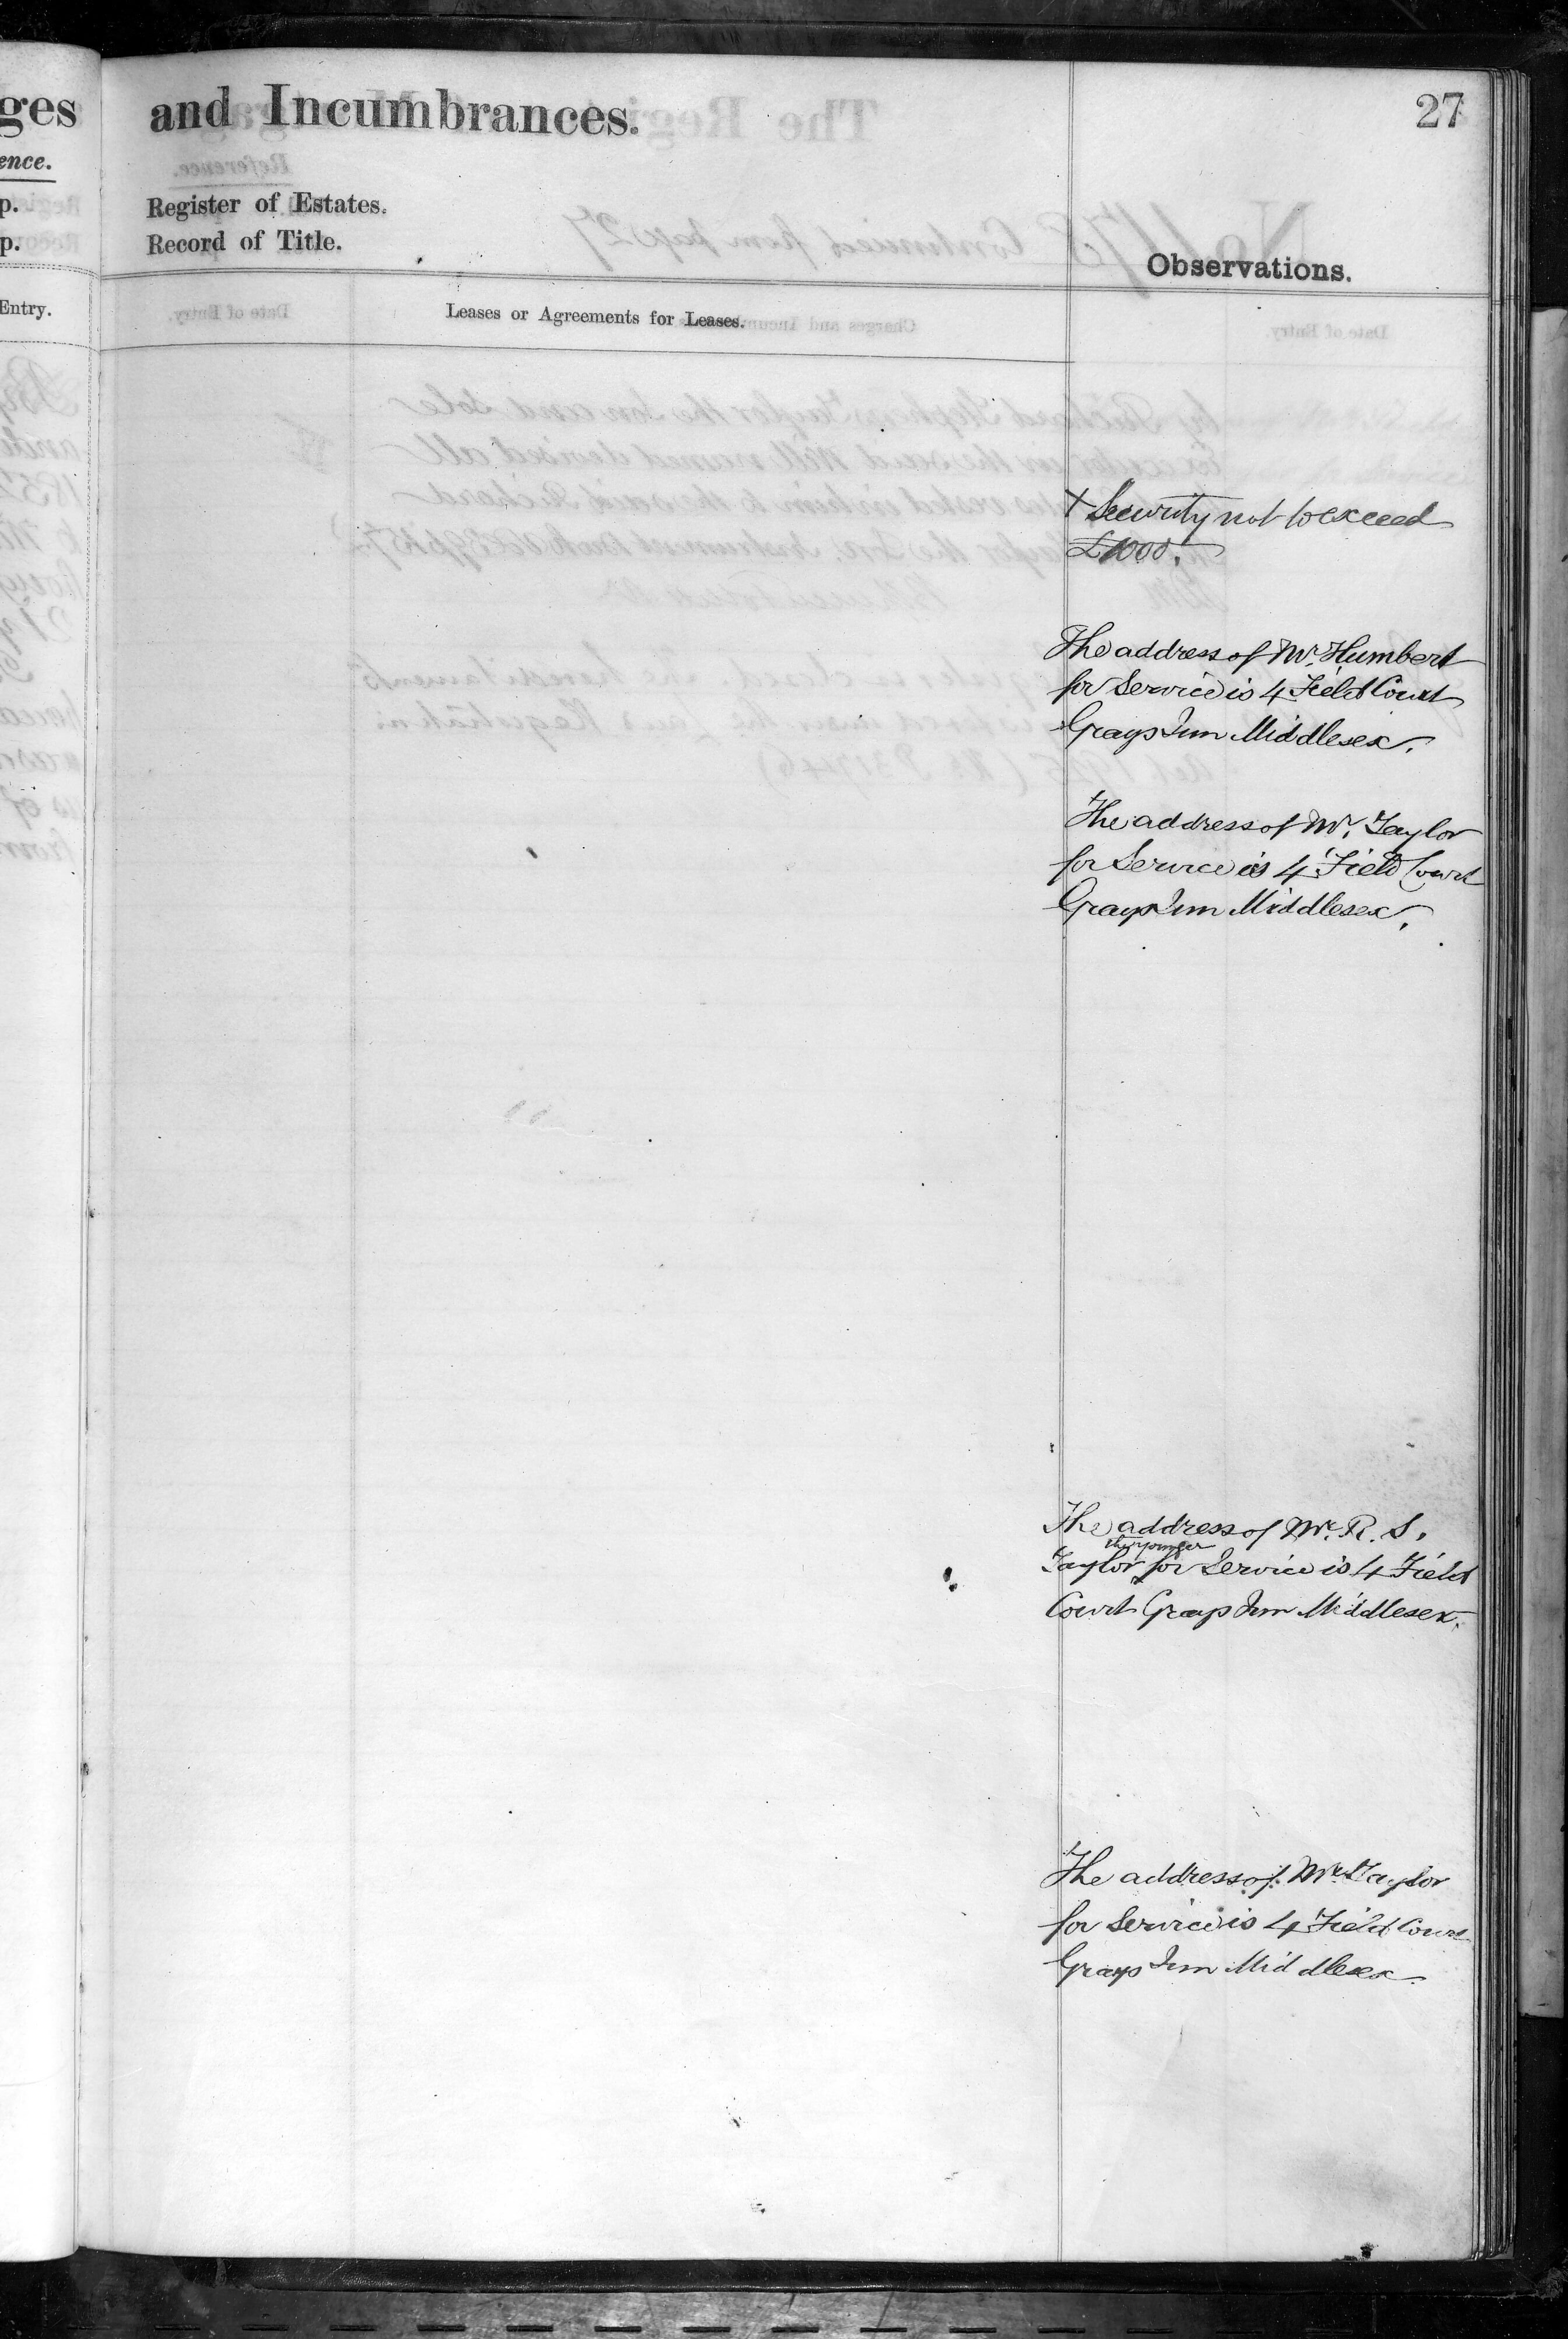 ges
ence.
p.
p.
Entry.
and Incumbrances.
27
Register of Estates.
Record of Title.
Observations.
Leases or Agreements for Leases.
+ Security not to exceed
£1000.
The address of Mr. Humbert
for Service is 4 Field Court
Grays Inn Middlesex.
The address of Mr. Taylor
for Service is 4 Field Court
Grays Inn Middlesex.
The address of Mr. R. S.
the younger
Taylor for Service is 4 Field
Court Grays Inn Middlesex.
The address of Mr. Taylor
for Service is 4 Field Court
Grays Inn Middlesex.